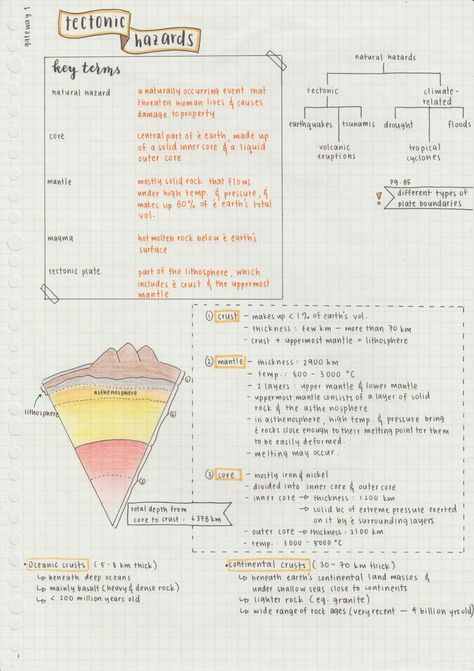 gateway 1
tectonic
hazards
key terms
natural hazard
a naturally occurring event that
threaten human lives & causes
damage to property
core
central part of ė earth, made up
of a solid inner core & a liquid
outer core
mantle
mostly solid rock that flows
under high temp. & pressure, &
makes up 80% of ė earth's total
vol.
magma
hot molten rock below ė earth's
surface
tectonic plate
part of the lithosphere, which
includes ė crust & the uppermost
mantle
natural hazards
tectonic
climate-
related
earthquakes
tsunamis
drought
floods
volcanic
eruptions
tropical
cyclones
pg. 85
! different types of
plate boundaries
① crust - makes up < 1% of earth's vol.
- thickness : few km — more than 70 km
- crust + uppermost mantle = lithosphere
② mantle - thickness : 2900 km
- temp. : 800 - 3000 °C
- 2 layers : upper mantle & lower mantle
- uppermost mantle consists of a layer of solid
rock & the asthenosphere
- in asthenosphere, high temp. & pressure bring
ė rocks close enough to their melting point for them
to be easily deformed.
- melting may occur.
③ core - mostly iron & nickel
- divided into inner core & outer core
- inner core → thickness : 1200 km
→ solid bc of extreme pressure exerted
on it by ė surrounding layers
- outer core → thickness : 2100 km
- temp : 3000 - 5000 °C
asthenosphere
lithosphere
①
②
③
total depth from
core to crust : 6378 km
Oceanic crusts ( 5-8 km thick)
↳ beneath deep oceans
↳ mainly basalt (heavy & dense rock)
↳ < 200 million years old
continental crusts ( 30 - 70 km thick)
↳ beneath earth's continental land masses &
under shallow seas close to continents
↳ lighter rock ( eg. granite)
↳ wide range of rock ages (very recent — 4 billion yrs old)
1